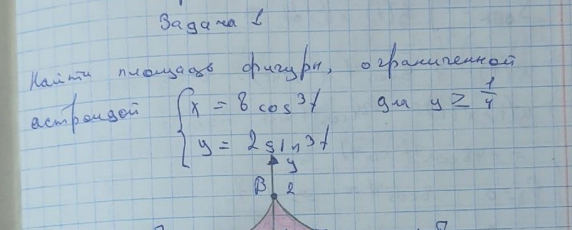 Задача 1
Найти площадь фигуры, ограниченной
астроидой { x = 8 cos³t для y ≥ 1/4
y = 2 sin³t
y
B 2